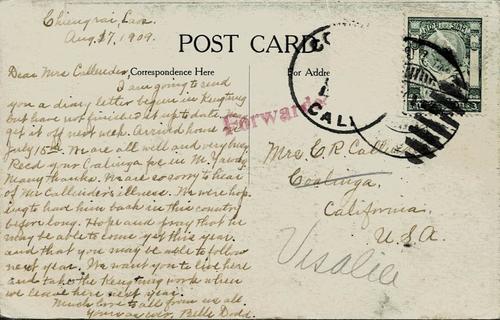 Chiengrai, Laos
Aug. 17, 1909.
POST CARD
Correspondence Here
For Addre
Dear Mrs Callender,
I am going to send
you a diary letter begun in Kengtung
but have not finished it up to date. Will
get it off next week. Arrived home
July 15th. We are all well and very busy
Recd your Coalinga
Many thanks. We are so sorry to hear
of Mr Callender's illness. We were hop-
ing to had him back in this country
before long. Hope and pray that he
may be able to come yet this year
and that you may be able to follow
next year. We want you to live here
and take the Kengtung work when
we leave here next year.
Much love to all from us all.
Yours as ever, Belle Dodd.
Forwarded
CALI
Mrs. C. R. Call
Coalinga,
California.
U.S.A.
Visalia